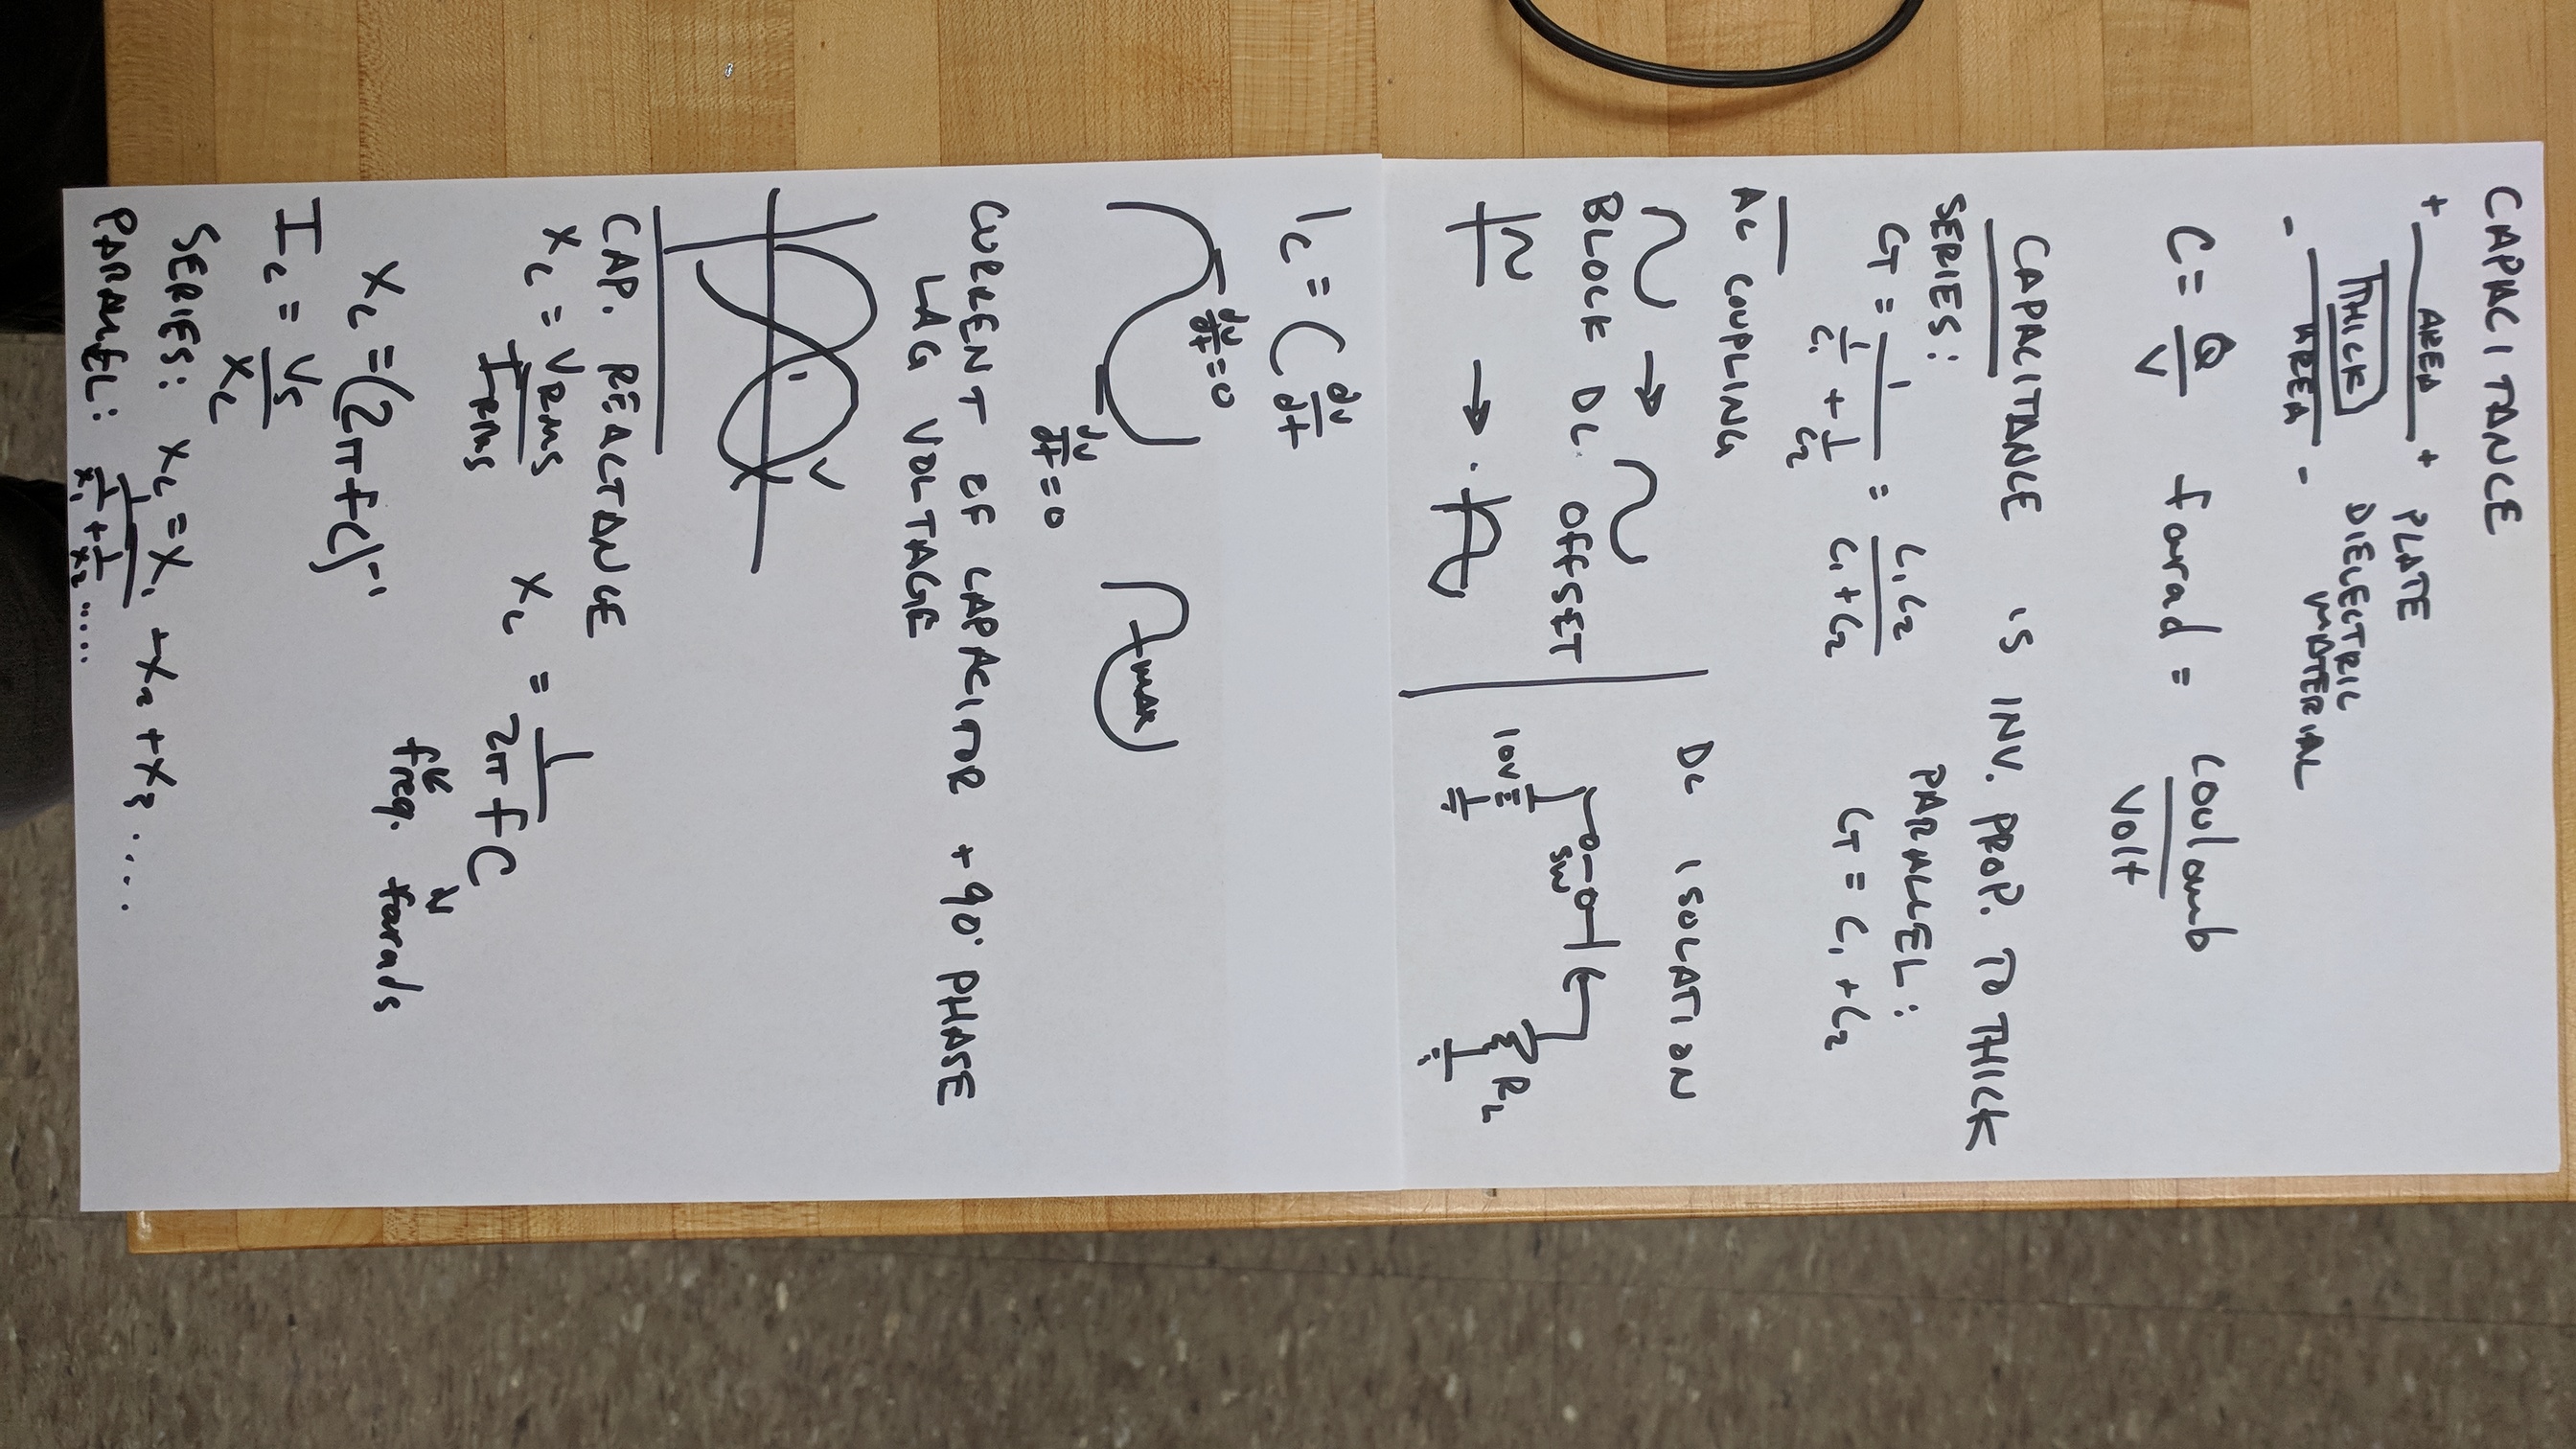 CAPACITANCE
+ AREA + PLATE
THICK DIELECTRIC
- AREA - MATERIAL
C = Q/V farad = coulomb/volt
CAPACITANCE IS INV. PROP. TO THICK
SERIES: PARALLEL:
CT = 1/(1/C1 + 1/C2) = C1C2/(C1+C2) CT = C1 + C2
AC COUPLING DC ISOLATION
BLOCK DC OFFSET
SW
10V RL
Ic = C dv/dt
dv/dt = 0
MAX
dv/dt = 0
CURRENT OF CAPACITOR +90° PHASE
LAG VOLTAGE
I V
CAP. REACTANCE
Xc = VRMS/IRMS Xc = 1/(2π f C)
freq. farads
Xc = (2πfC)⁻¹
Ic = Vs/Xc
SERIES: Xc = X1 + X2 + X3 .....
PARALLEL: 1/(1/X1 + 1/X2 .....